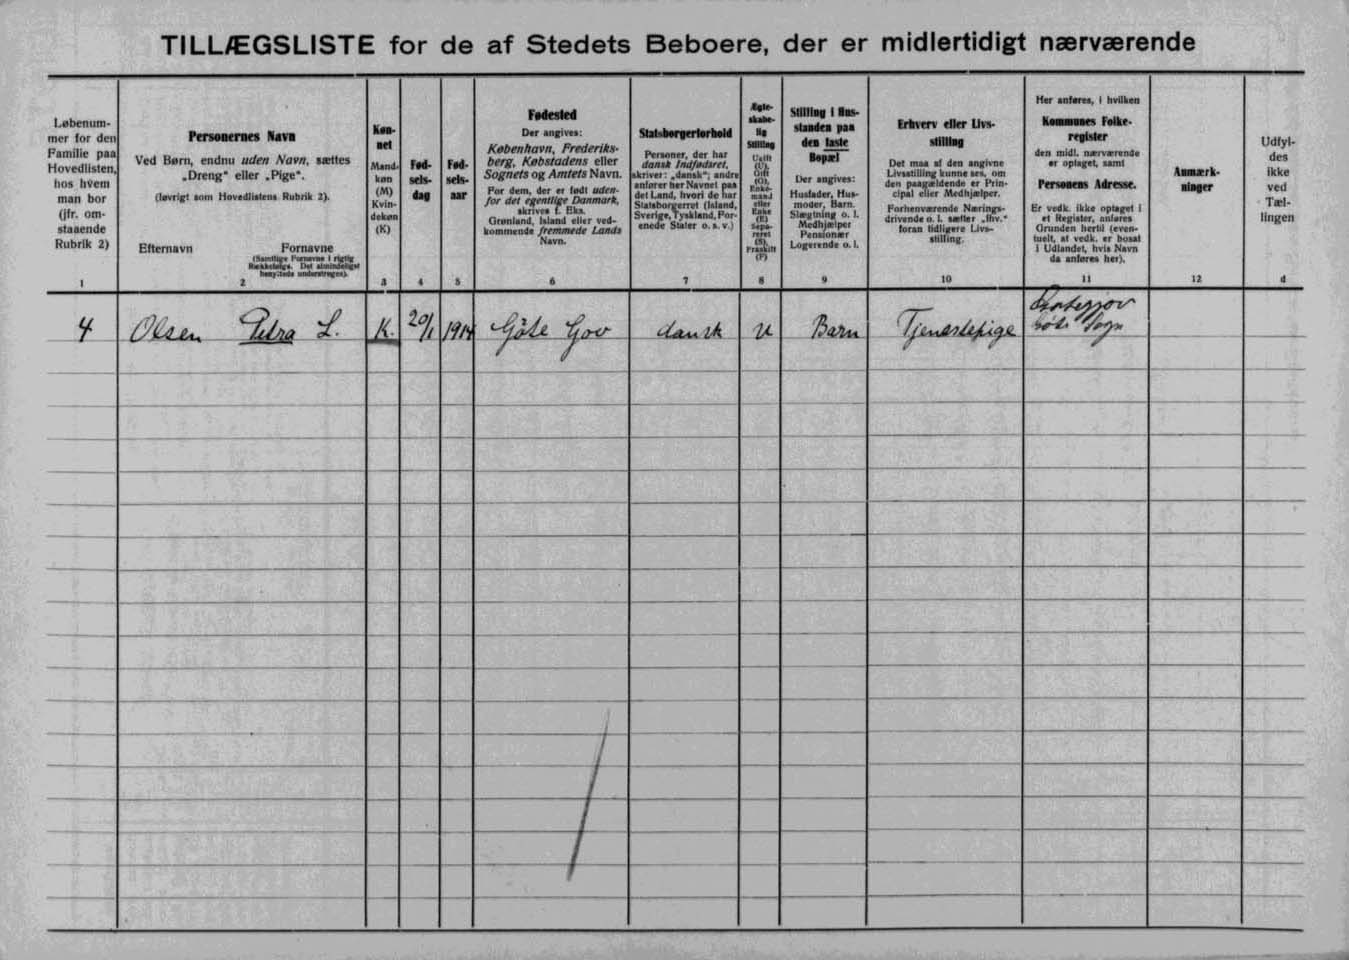 TILLÆGSLISTE for de af Stedets Beboere, der er midlertidigt nærværende
Løbenum-
mer for den
Familie paa
Hovedlisten,
hos hvem
man bor
(jfr. om-
staaende
Rubrik 2)
1
Personernes Navn
Ved Børn, endnu uden Navn, sættes
„Dreng“ eller „Pige“.
(Iøvrigt som Hovedlistens Rubrik 2).
Efternavn
Fornavne
(Samtlige Fornavne i rigtig
Rækkefølge. Det almindeligst
benyttede understreges).
2
Køn-
net
Mand-
køn
(M)
Kvin-
dekøn
(K)
3
Fød-
sels-
dag
4
Fød-
sels-
aar
5
Fødested
Der angives:
København, Frederiks-
berg, Købstadens eller
Sognets og Amtets Navn.
For dem, der er født uden-
for det egentlige Danmark,
skrives f. Eks.
Grønland, Island eller ved-
kommende fremmede Lands
Navn.
6
Statsborgerforhold
Personer, der har
dansk Indfødsret,
skriver: „dansk“; andre
anfører her Navnet paa
det Land, hvori de har
Statsborgerret (Island,
Sverige, Tyskland, For-
enede Stater o. s. v.)
7
Ægte-
skabe-
lig
Stilling
Ugift
(U),
Gift
(G),
Enke-
mand
eller
Enke
(E)
Sepa-
reret
(S),
Fraskilt
(F)
8
Stilling i Hus-
standen paa
den faste
Bopæl
Der angives:
Husfader, Hus-
moder, Barn.
Slægtning o. l.
Medhjælper
Pensionær
Logerende o. l.
9
Erhverv eller Livs-
stilling
Det maa af den angivne
Livsstilling kunne ses, om
den paagældende er Prin-
cipal eller Medhjælper.
Forhenværende Nærings-
drivende o. l. sætter „fhv.“
foran tidligere Livs-
stilling.
10
Her anføres, i hvilken
Kommunes Folke-
register
den midl. nærværende
er optaget, samt
Personens Adresse.
Er vedk. ikke optaget i
et Register, anføres
Grunden hertil (even-
tuelt, at vedk. er bosat
i Udlandet, hvis Navn
da anføres her).
11
Anmærk-
ninger
12
Udfyl-
des
ikke
ved
Tæl-
lingen
d
4 Olsen Petra L. K. 20/1 1914 Göte Gov dansk U Barn Tjenestepige
Sogn